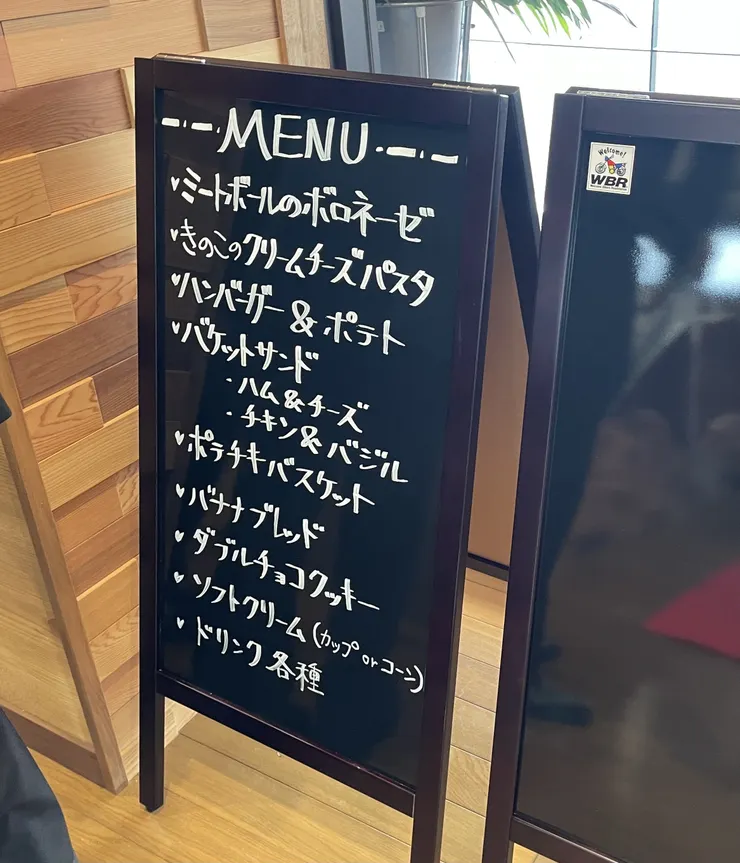 MENU
ミートボールのボロネーゼ
きのこのクリームチーズパスタ
ハンバーガー & ポテト
バケットサンド
・ハム&チーズ
・チキン&バジル
ポテチキバスケット
バナナブレッド
ダブルチョコクッキー
ソフトクリーム (カップ or コーン)
ドリンク各種
Welcome!
WBR